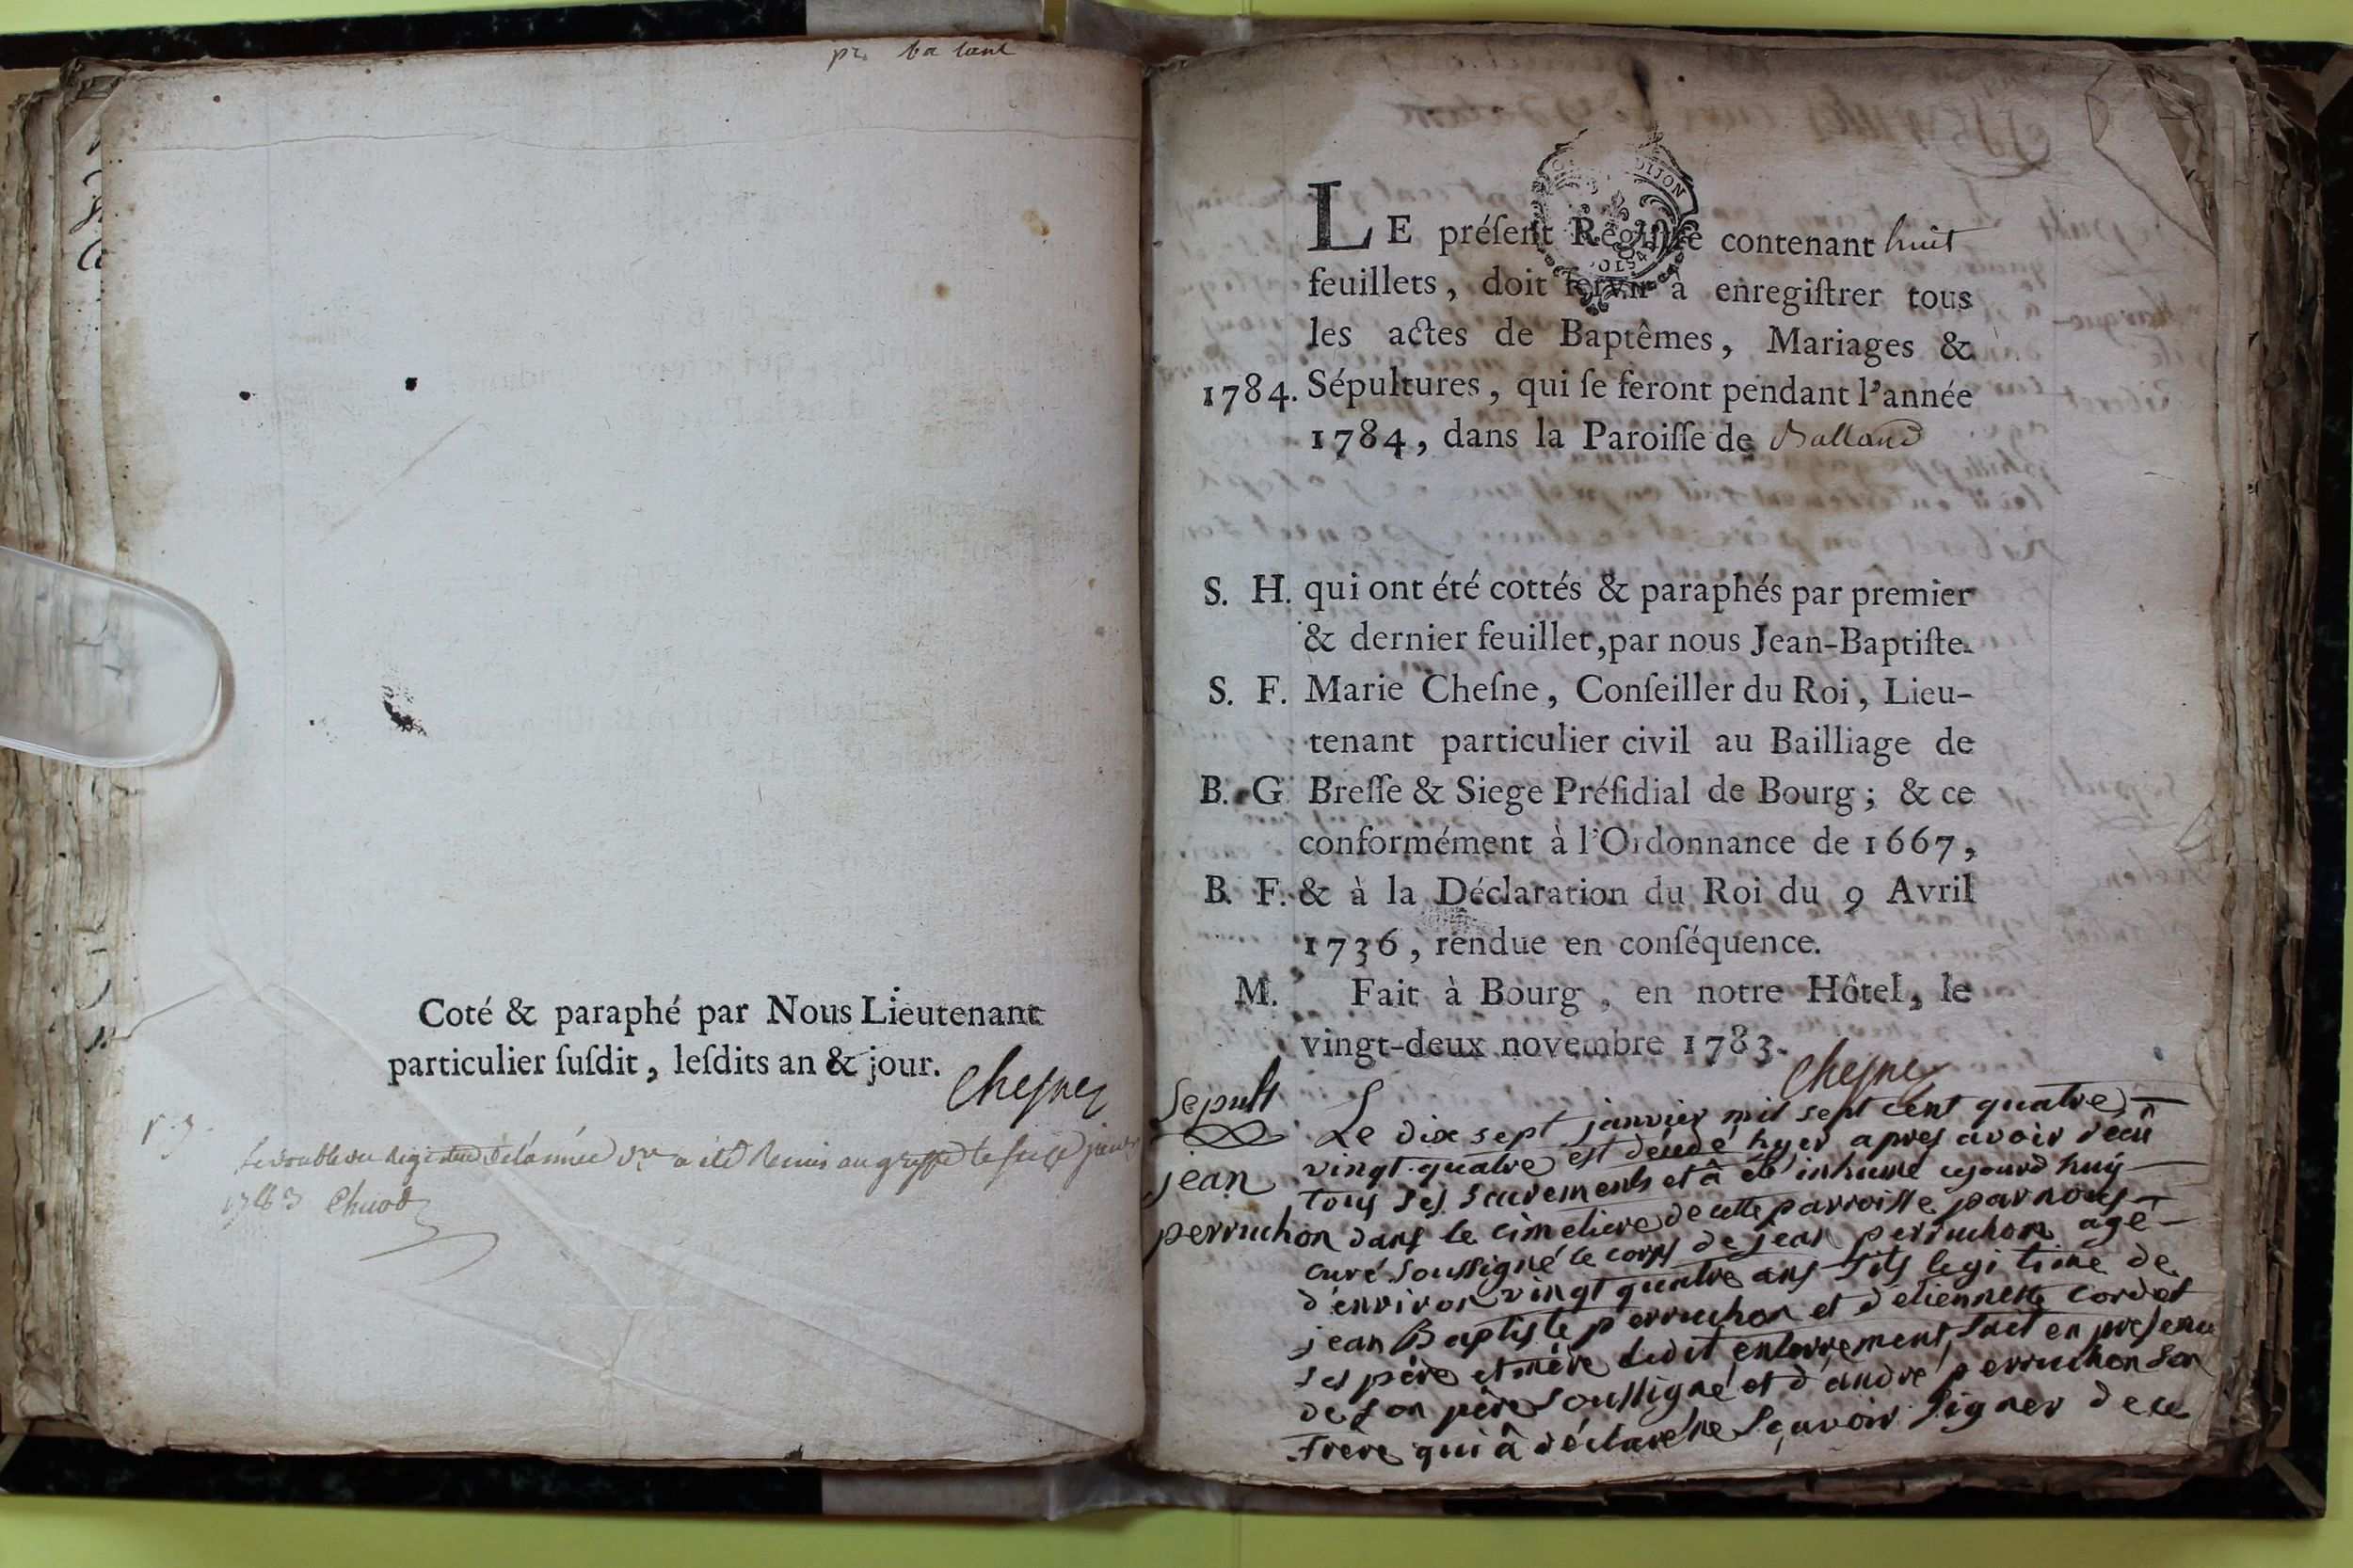 Coté & paraphé par Nous Lieutenant
particulier ſuſdit, leſdits an & jour.
Cheſne
a été Remis au greffe le
1783
DIJON
LE préſent Regiſtre contenant huit
feuillets, doit ſervir à enregiſtrer tous
les actes de Baptêmes, Mariages &
1784. Sépultures, qui ſe feront pendant l'année
1784, dans la Paroiſſe de Balland
S. H. qui ont été cottés & paraphés par premier
& dernier feuillet, par nous Jean-Baptiſte-
S. F. Marie Cheſne, Conſeiller du Roi, Lieu-
tenant particulier civil au Bailliage de
B. G. Breſſe & Siege Préſidial de Bourg; & ce
conformément à l'Ordonnance de 1667,
B. F. & à la Déclaration du Roi du 9 Avril
1736, rendue en conſéquence.
M. Fait à Bourg, en notre Hôtel, le
vingt-deux novembre 1783.
Cheſne
Sepult
jean
perruchon
Le dix sept janvier mil sept cent quatre
vingt quatre est décédé hyer apres avoir recû
tous ses sacrements et à été inhumé ajourd huÿ
dans le cimetiere de cette parroisse par nous
curé soussigné le corps de jean perruchon agé
d'environ vingt quatre ans fils legitime de
jean Baptiste perruchon et d'etiennette cordet
ses père et mère ledit enterrement fait en presence
de son père soussigné et d'andré perruchon son
frère qui â déclaré ne sçavoir signer de ce